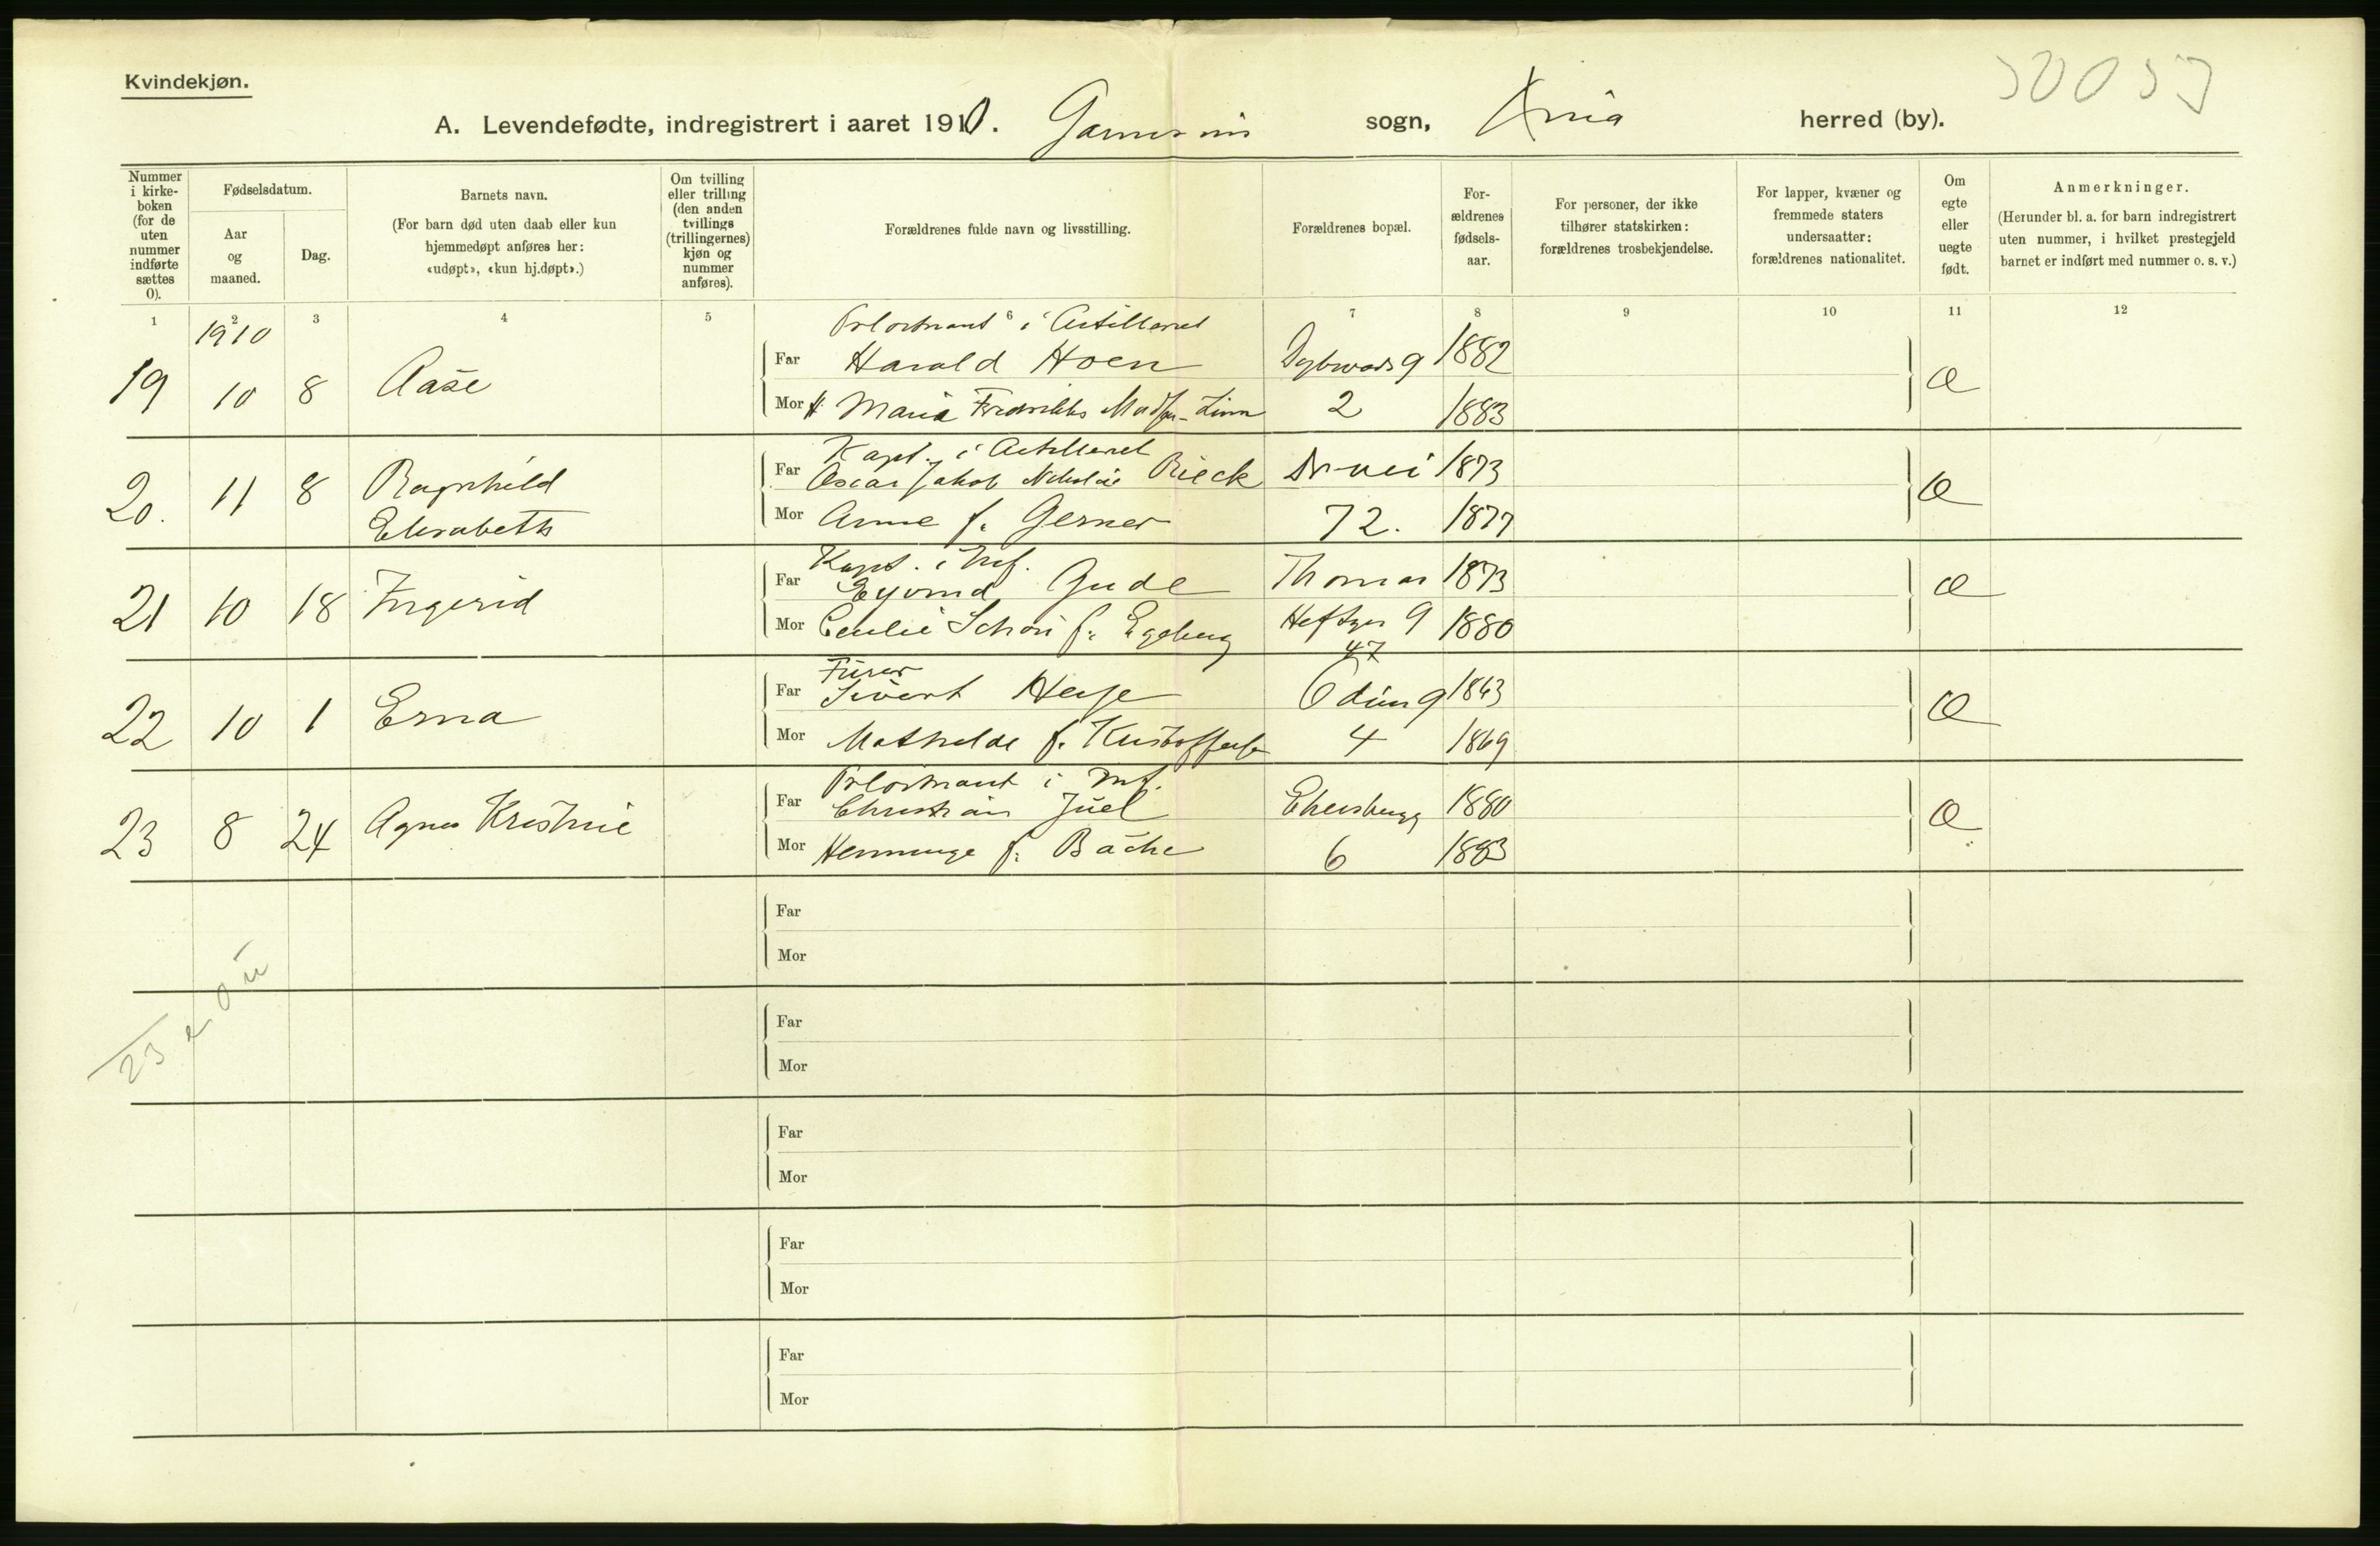 Kvindekjøn.
A. Levendefødte, indregistrert i aaret 1910. sogn, Xnia herred (by).
Nummer i kirke-boken (for de uten nummer indførte sættes 0).
Fødselsdatum.
Aar og maaned.
Dag.
Barnets navn.
(For barn død uten daab eller kun hjemmedøpt anføres her: «udøpt», «kun hj.døpt».)
Om tvilling eller trilling (den anden tvillings (trillingernes) kjøn og nummer anføres).
Forældrenes fulde navn og livsstilling.
Forældrenes bopæl.
For-ældrenes fødsels-aar.
For personer, der ikke tilhører statskirken: forældrenes trosbekjendelse.
For lapper, kvæner og fremmede staters undersaatter: forældrenes nationalitet.
Om egte eller uegte født.
Anmerkninger.
(Herunder bl. a. for barn indregistrert uten nummer, i hvilket prestegjeld barnet er indført med nummer o. s. v.)
1 2 3 4 5 6 7 8 9 10 11 12
1910
i Artilleriet
19 10 8 Aase Far Harald Hoen Dybwads g 1882 Æ
Mor Maria 2 1883
Kapt. i Artilleriet
20. 11 8 Ragnhild Far Oscar Jakob Nikolai Rieck Dr-vei 1873 Æ
Elisabeth Mor Anne f. Gerner 72. 1877
Kapt. i Inf.
21 10 18 Ingerid Far Eyvind Gude Thomas 1873 Æ
Mor Cecilie Schou f. Egeberg Heftyes g 1880
47
Furer
22 10 1 Erna Far Sivert Odins g 1863 Æ
Mor Mathilde f. Kristoffersen 4 1869
i Inf.
23 8 24 Agnes Kristine Far Christian Juel 1880 Æ
Mor Henninge f. Bache 6 1883
Far
Mor
Far
Mor
23
Far
Mor
Far
Mor
Far
Mor